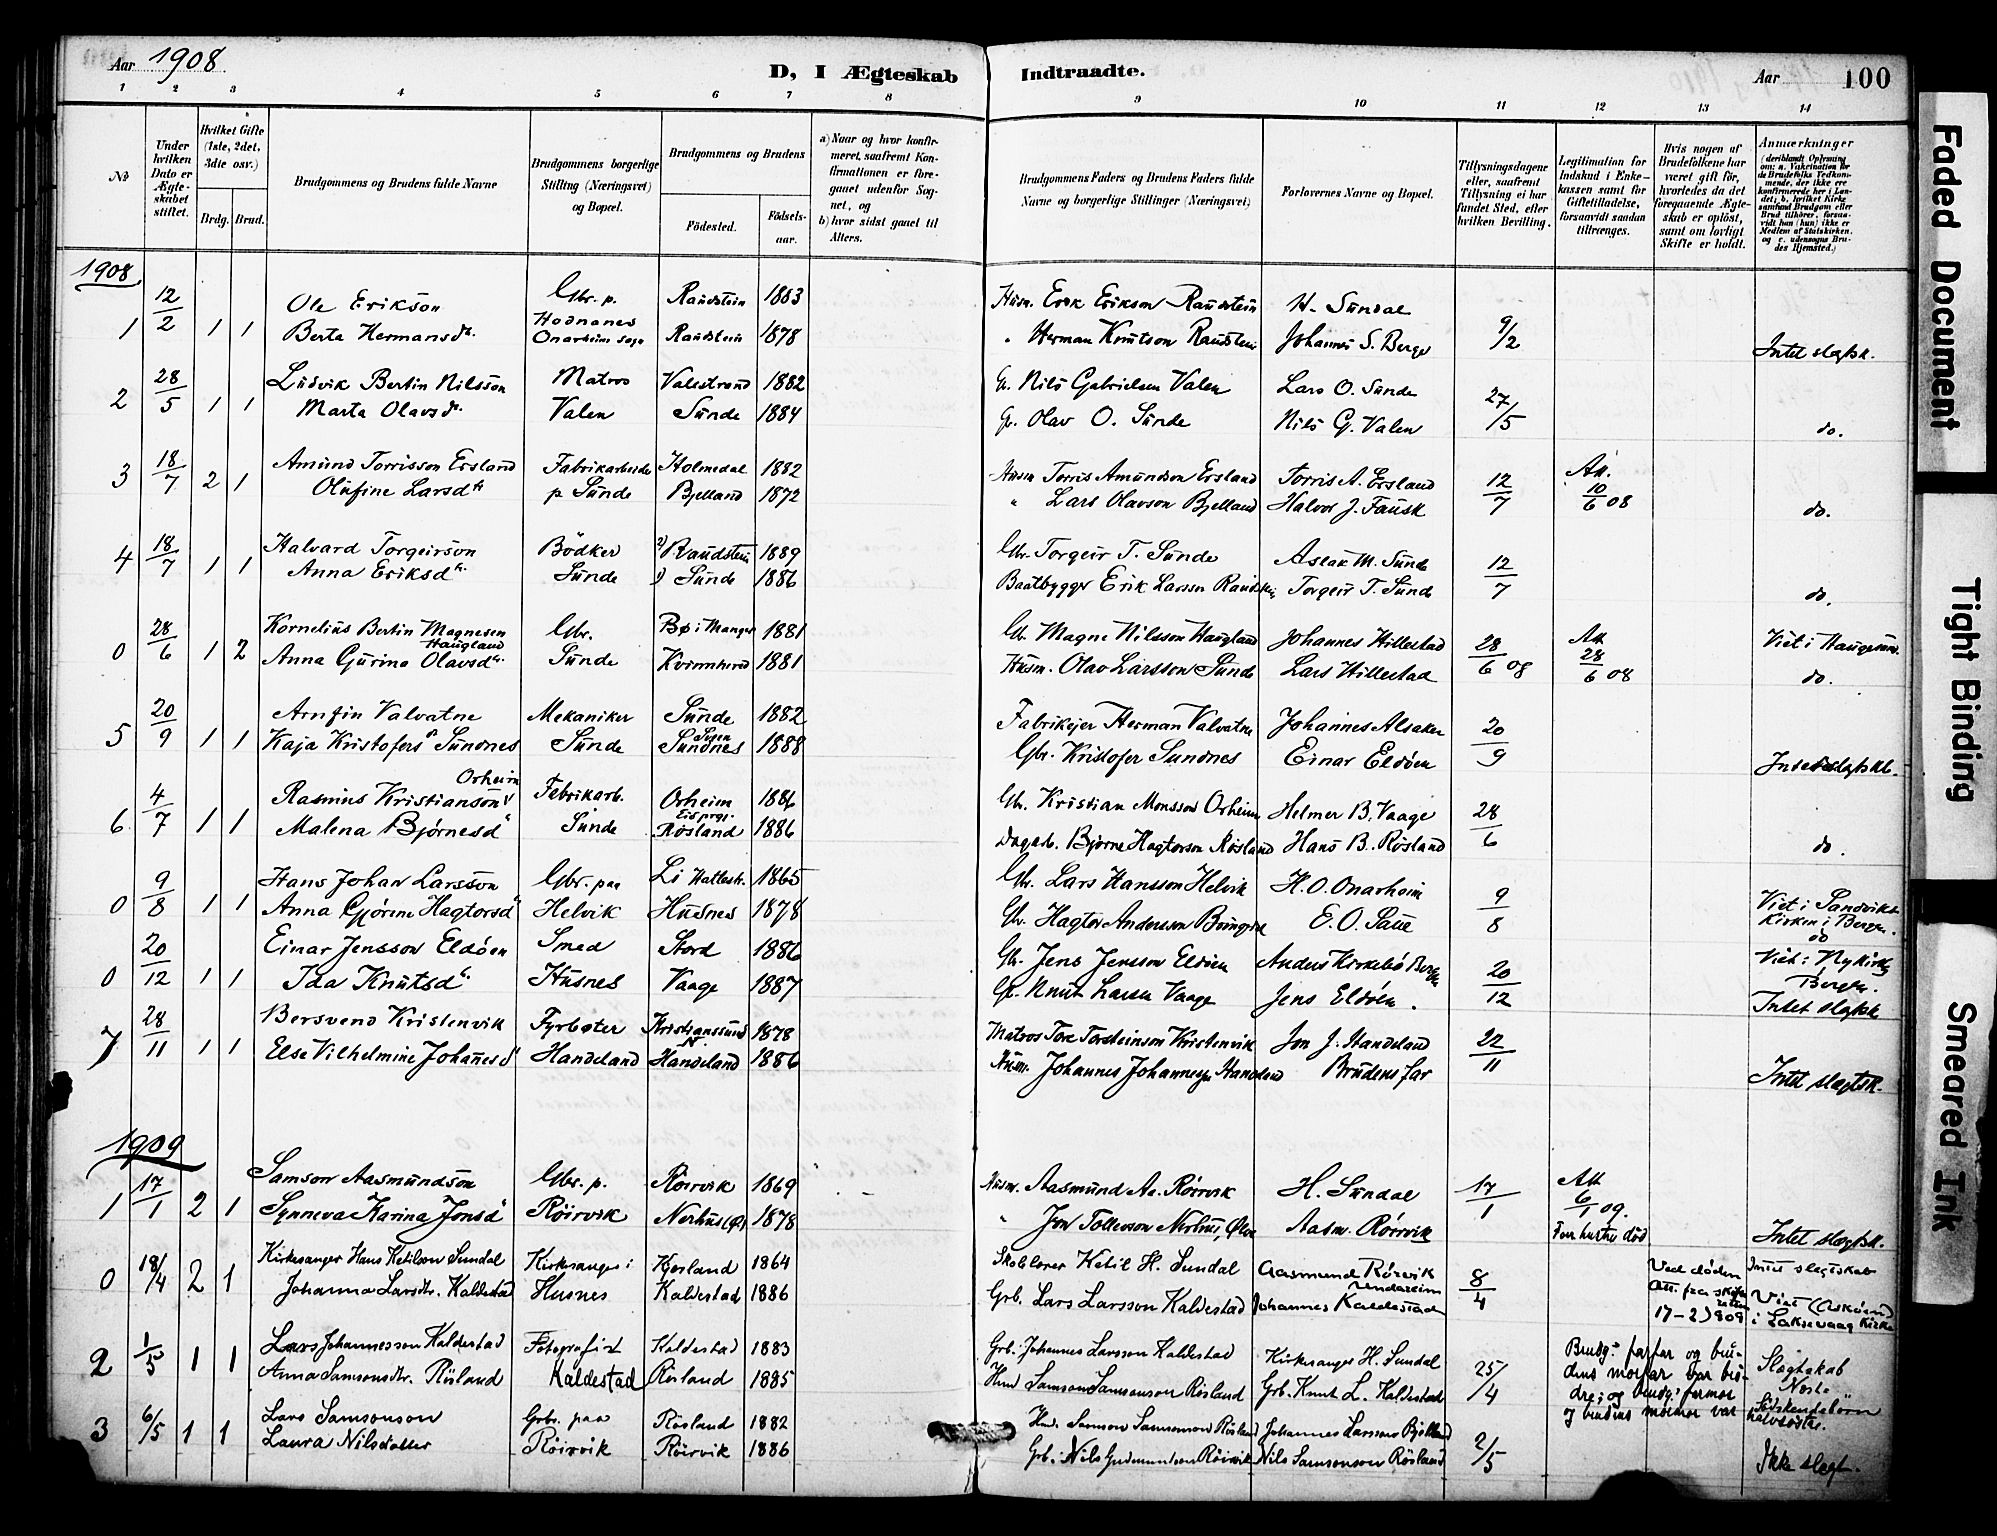 Aar 1908
D, I Ægteskab Indtraadte.
Aar 100
1 2 3 4 5 6 7 8 9 10 11 12 13 14
No
Under hvilken Dato er Ægteskabet stiftet.
Hvilket Gifte (1ste, 2det, 3die osv.)
Brdg. Brud.
Brudgommens og Brudens fulde Navne
Brudgommens borgerlige Stilling (Næringsvei) og Bopæl.
Brudgommens og Brudens
Födested.
Födselsaar.
a) Naar og hvor konfirmeret, saafremt Konfirmationen er foregaaet udenfor Sognet, og
b) hvor sidst gaaet til Alters.
Brudgommens Faders og Brudens Faders fulde Navne og borgerlige Stillinger (Næringsvei)
Forlovernes Navne og Bopæl.
Tillysningsdagene eller, saafremt Tillysning ei har fundet Sted, efter hvilken Bevilling.
Legitimation for Indskud i Enkekassen samt for Giftetilladelse, forsaavidt saadan tiltrænges.
Hvis nogen af Brudefolkene har været gift før, hvorledes da det foregaaende Ægteskab er oplöst, samt om lovligt Skifte er holdt.
Anmærkninger
(deriblandt Oplysning om: a. Vakcination for de Brudefolks Vedkommende, der ikke ere konfirmerede her i Landet; b. hvilket Kirkesamfund Brudgom eller Brud tilhörer, forsaavidt han (hun) ikke er Medlem af Statskirken, og c. udensogns Brudes Hjemsted.)
1908
12/2 Ole Erikson Gbr. p. Raudstein 1883 Husm. Erik Erikson Raudstein H. Sundal
1 1 1 Berta Hermansdtr. Hodnanes Onarheim sogn Raudstein 1878 " Herman Knutson Raudstein Johannes S. Berge 9/2 Intet slegtsk.
28/5 Ludvik Bertin Nilsson Matros Valestrand 1882 G. Nils Gabrielsen Valen Lars O. Sunde
2 1 1 Marta Olavsdtr. Valen Sunde 1884 G. Olav O. Sunde Nils G. Valen 27/5 do.
18/7 Amund Torrisson Ersland Fabrikarbeider Holmedal 1882 Husm Torris Amundson Ersland Torris A. Ersland 12/7 Att. 10/6 08
3 2 1 Olufine Larsdtr p Sunde Bjelland 1872 " Lars Olavson Bjelland Halvor J. Fausk do.
18/7 Halvard Torgeirson Bödker 2) Raudstein 1889 Gbr. Torgeir T. Sunde Aslak M. Sunde 12/7
4 1 1 Anna Eriksdtr. Sunde 1) Sunde 1886 Baatbygger Erik Larsson Raudstein Torgeir T. Sunde do.
28/6 Kornelius Bertin Magnesen Haugland Gbr. Bø i Manger 1881 G. Magne Nilsson Haugland Johannes Hillestad 28/6 08 Att 28/6 08 Viet i Haugesund.
0 1 2 Anna Gurina Olavsdtr. Sunde Kvinnherad 1881 Husm. Olav Larsson Sunde Lars Hillestad do.
20/9 Arnfin Valvatne Mekaniker Sunde 1882 Fabrikejer Herman Valvatne Johannes Alsaker 20/9
5 1 1 Kaja Kristofersd Sundnes Sunde Sundnes 1888 Gbr. Kristofer Sundnes Einar Eldöen Intet slegtsk.
4/7 Rasmus Kristianson Orheim Fabrikarb. Orheim 1886 Gb. Kristian Monsson Orheim Helmer B. Vaage 28/6
6 1 1 Malena Bjørnesd Sunde Eid prgj. Røsland 1886 Dagarb. Bjørne Hagtorson Røsland Hans B. Røsland do.
9/8 Hans Johan Larsson Gbr. paa Li Hatlestr. 1865 Gb. Lars Hansson Helvik H. O. Onarheim 9/8
0 1 1 Anna Gjørine Hagtorsd Helvik Husnes 1878 Gb. Hagtor Andersson E. O. Saue Viet i Sandviks Kirken i Bergen. do
20/12 Einar Jensson Eldöen Smed Stord 1886 Gb. Jens Jensson Eldöen Anders Kirkebö Bergen 20/12 Viet i Nykirken Bergen.
0 1 1 Ida Knutsd. Husnes Vaage 1887 G. Knut Larsen Vaage Jens Eldöen. Intet slegtsk
28/11 Bersvend Kristenvik Fyrbøter Kristianssund N 1878 Matros Tore Torsteinson Kristenvik Jon J. Handeland 22/11
7 1 1 Else Vilhelmine Johanesd Handeland Handeland 1886 Husm. Johannes Johannesen Handeland Brudens far Intet slegtsk.
1909
17/1 Samson Aasmundson Gbr. p. Röirvik 1869 Husm. Aasmund Aa. Röirvik H. Sundal 17/1 Att 6/1 09.
1 2 1 Synneva Karina Jonsd Röirvik Nerhus (Ø) 1878 " Jon Tollesson Nerhus, Ølen Aasm. Röirvik Før hustru død Intet slegtsk.
18/4 Kirkesanger Hans Ketilson Sundal Kirkesanger i 1864 Skolelærer Ketil H. Sundal Aasmund Rörvik Undarheim 8/4 Ved døden Att. fra skifteretten 17-2-1909 Intet slegtskab
0 2 1 Johanna Larsdtr. Kaldestad Husnes Kaldestad 1886 Grb. Lars Larsson Kaldestad Johannes Kaldestad Viet (Askøen) i Laksevaag Kirke
1/5 Lars Johannesson Kaldestad Fotograf i Kaldestad 1883 Grb. Johannes Larsson Kaldestad Kirkesanger H. Sundal 25/4 Brudg: farfar og brudens morfar var brødre; og brudg: farmor og brudens mormor var halvsøstre. Slægtskab Næstsødskendebørn
2 1 1 Anna Samsonsdtr. Rösland Kaldestad Rösland 1885 Hmd Samson Samsonson Rösland Grb. Knut L. Kaldestad
6/5 Lars Samsonson Grbr. paa Rösland 1882 Hmd. Samson Samsonson Rösland Johannes Larsson Bjelland 2/5
3 1 1 Laura Nilsdatter Röirvik Röirvik 1886 Grb. Nils Gudmundson Röirvik Nils Samsonson Rösland Ikke slegt.
Faded Document
Tight Binding
Smeared Ink